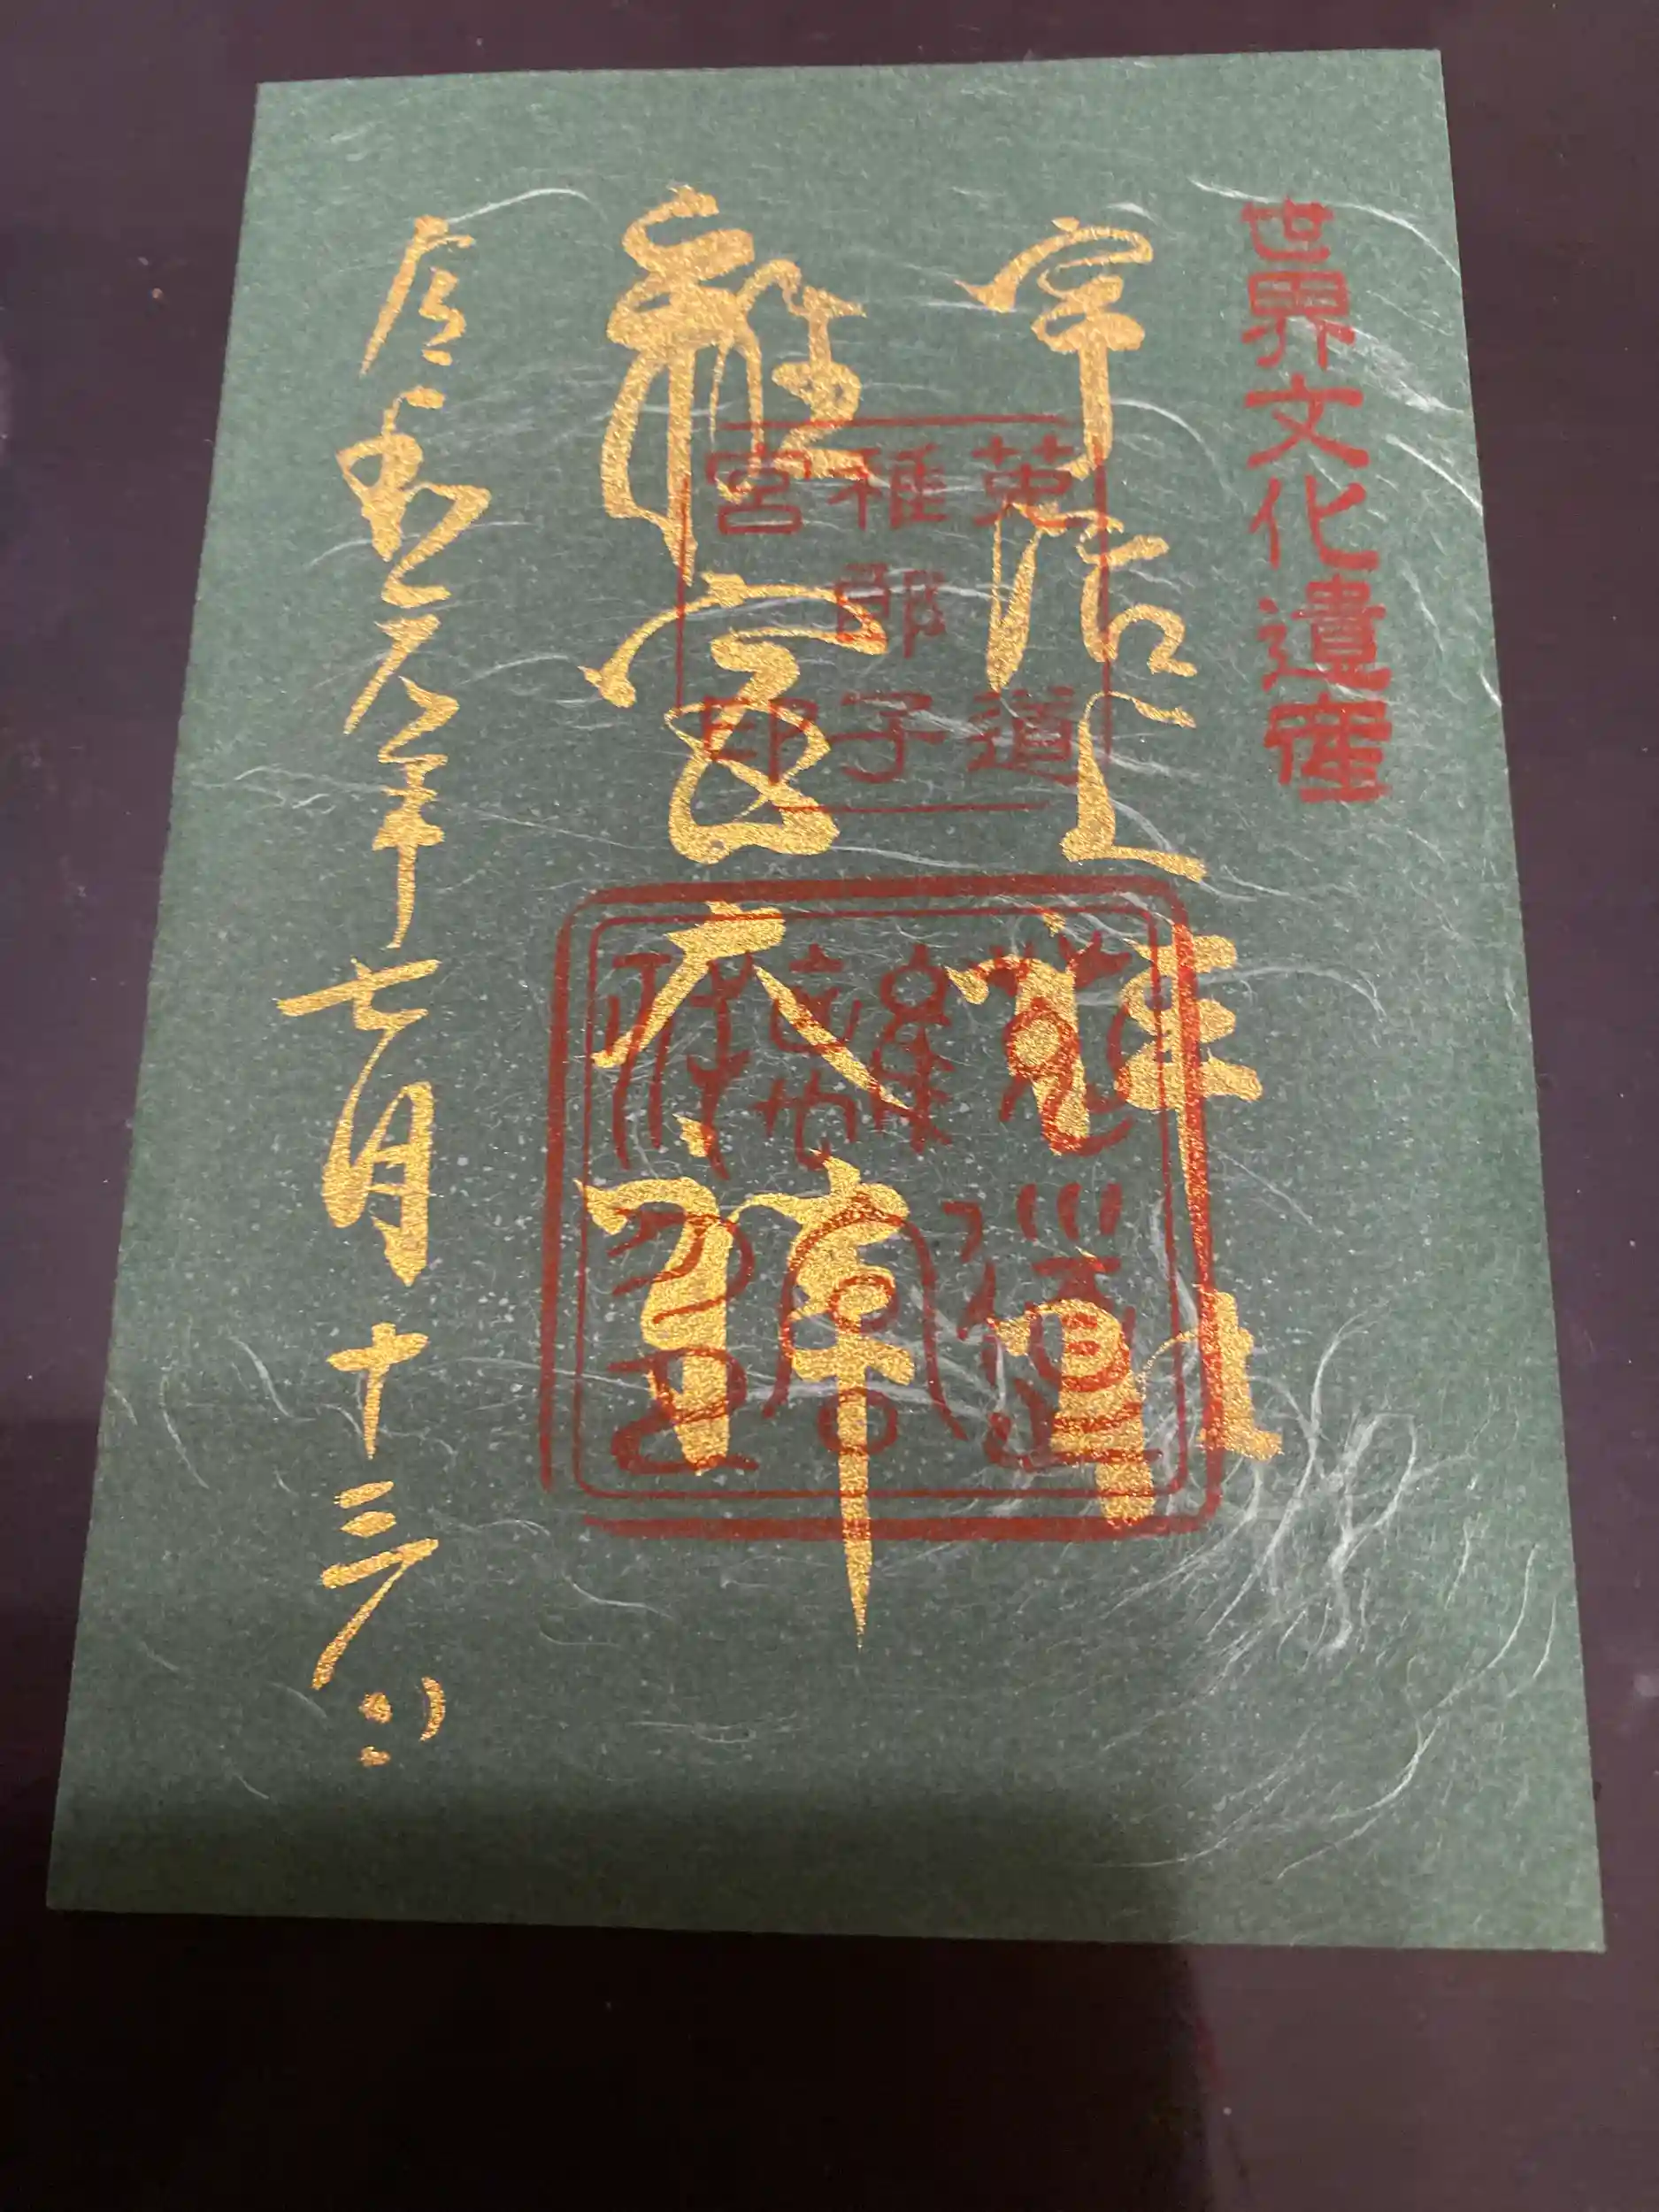 世界文化遺産
宇治上神社
離宮大神
令和元年七月十三日
菟道
稚郎子
宮印